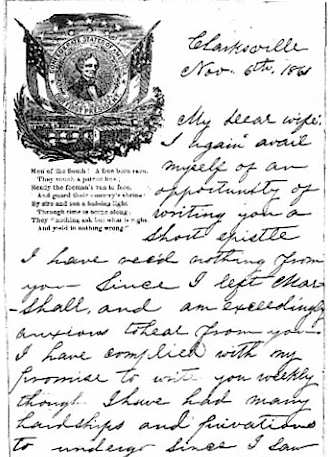 Clarksville
Nov. 6th, 1861
CONFEDERATE STATES OF AMERICA
FIRST PRESIDENT
My dear wife:
I again avail
myself of an
opportunity of
writing you a
short epistle
Men of the South! A free born race,
They vouch a patriot line;
Ready the foeman's van to face,
And guard their country's shrine;
By sire and son a haloing light
Through time is borne along;
They "nothing ask but what is right,
And yield to nothing wrong."
I have rec'd nothing from
you – Since I left Mar
-shall, and am exceedingly
anxious to hear from you –
I have complied with my
promise to write you weekly
though I have had many
hardships and privations
to undergo since I saw